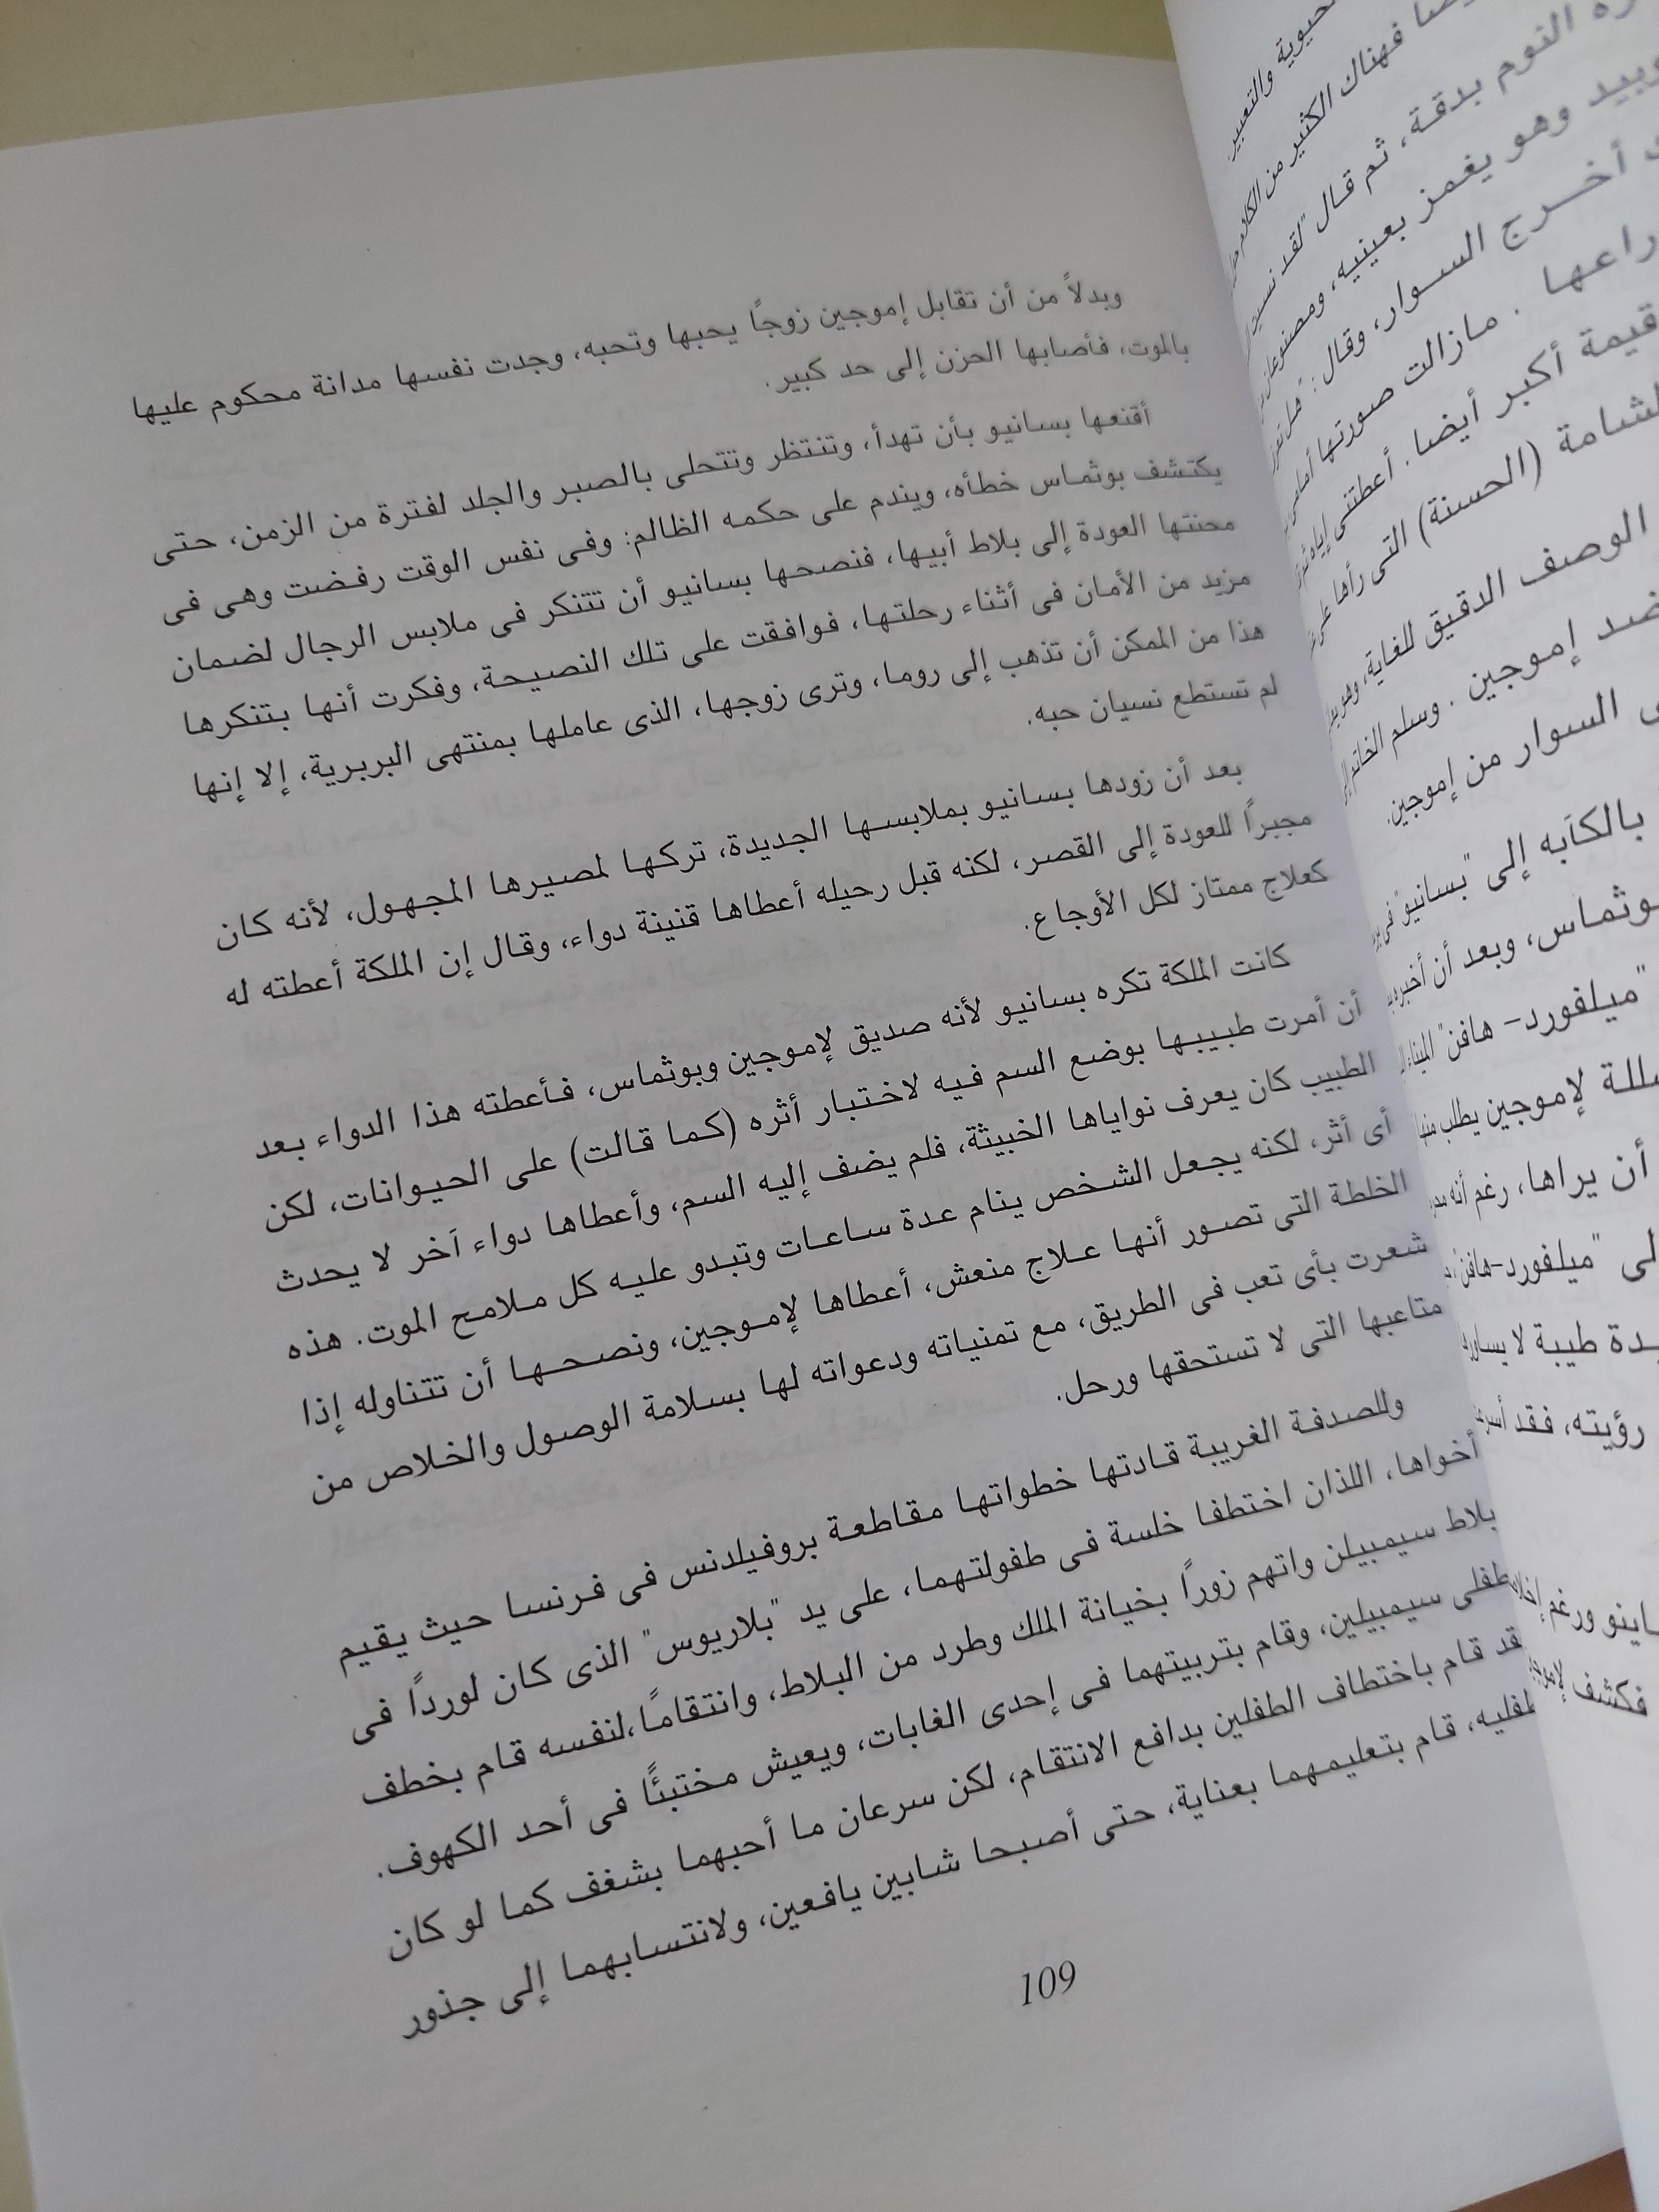 وبدلاً من أن تقابل إموجين زوجًا يحبها وتحبه، وجدت نفسها مدانة محكوم عليها
بالموت، فأصابها الحزن إلى حد كبير.
أقنعها بسانيو بأن تهدأ، وتنتظر وتتحلى بالصبر والجلد لفترة من الزمن، حتى
يكتشف بوثماس خطأه، ويندم على حكمه الظالم: وفى نفس الوقت رفضت وهى فى
محنتها العودة إلى بلاط أبيها، فنصحها بسانيو أن تتنكر فى ملابس الرجال لضمان
مزيد من الأمان فى أثناء رحلتها، فوافقت على تلك النصيحة، وفكرت أنها بتنكرها
هذا من الممكن أن تذهب إلى روما، وترى زوجها، الذى عاملها بمنتهى البربرية، إلا إنها
لم تستطع نسيان حبه.
بعد أن زودها بسانيو بملابسها الجديدة، تركها لمصيرها المجهول، لأنه كان
مجبراً للعودة إلى القصر، لكنه قبل رحيله أعطاها قنينة دواء، وقال إن الملكة أعطته له
كعلاج ممتاز لكل الأوجاع.
كانت الملكة تكره بسانيو لأنه صديق لإموجين وبوثماس، فأعطته هذا الدواء بعد
أن أمرت طبيبها بوضع السم فيه لاختبار أثره (كما قالت) على الحيوانات، لكن
الطبيب كان يعرف نواياها الخبيثة، فلم يضف إليه السم، وأعطاها دواء آخر لا يحدث
أى أثر، لكنه يجعل الشخص ينام عدة ساعات وتبدو عليه كل ملامح الموت. هذه
الخلطة التى تصور أنها علاج منعش، أعطاها لإموجين، ونصحها أن تتناوله إذا
شعرت بأى تعب فى الطريق، مع تمنياته ودعواته لها بسلامة الوصول والخلاص من
متاعبها التى لا تستحقها ورحل.
وللصدفة الغريبة قادتها خطواتها مقاطعة بروفيلدنس فى فرنسا حيث يقيم
أخواها، اللذان اختطفا خلسة فى طفولتهما، على يد "بلاريوس" الذى كان لورداً فى
بلاط سيمبيلن واتهم زوراً بخيانة الملك وطرد من البلاط، وانتقامًا،لنفسه قام بخطف
طفلى سيمبيلين، وقام بتربيتهما فى إحدى الغابات، ويعيش مختبئًا فى أحد الكهوف.
قد قام باختطاف الطفلين بدافع الانتقام، لكن سرعان ما أحبهما بشغف كما لو كان
طفليه، قام بتعليمهما بعناية، حتى أصبحا شابين يافعين، ولانتسابهما إلى جذور
109
حيوية والتعبير
فهناك الكثير من الكلام
النوم بدقة، ثم قال "لقد نسيت
وهو يغمز بعينيه، ومصنوعان
أخرج السوار، وقال:
. مازالت صورتها أمامى
قيمة أكبر أيضا. أعطتنى إياه
الشامة (الحسنة) التى رآها على
الوصف الدقيق للغاية،
ضد إموجين . وسلم الخاتم
السوار من إموجين.
بالكآبه إلى "بسانيو" فى
بوثماس، وبعد أن أخبره
"ميلفورد- هافن" الميناء
لإموجين يطلب منها
أن يراها، رغم أنه
"ميلفورد-هافن"
طيبة لا يساورها
رؤيته، فقد
ورغم
فكشف